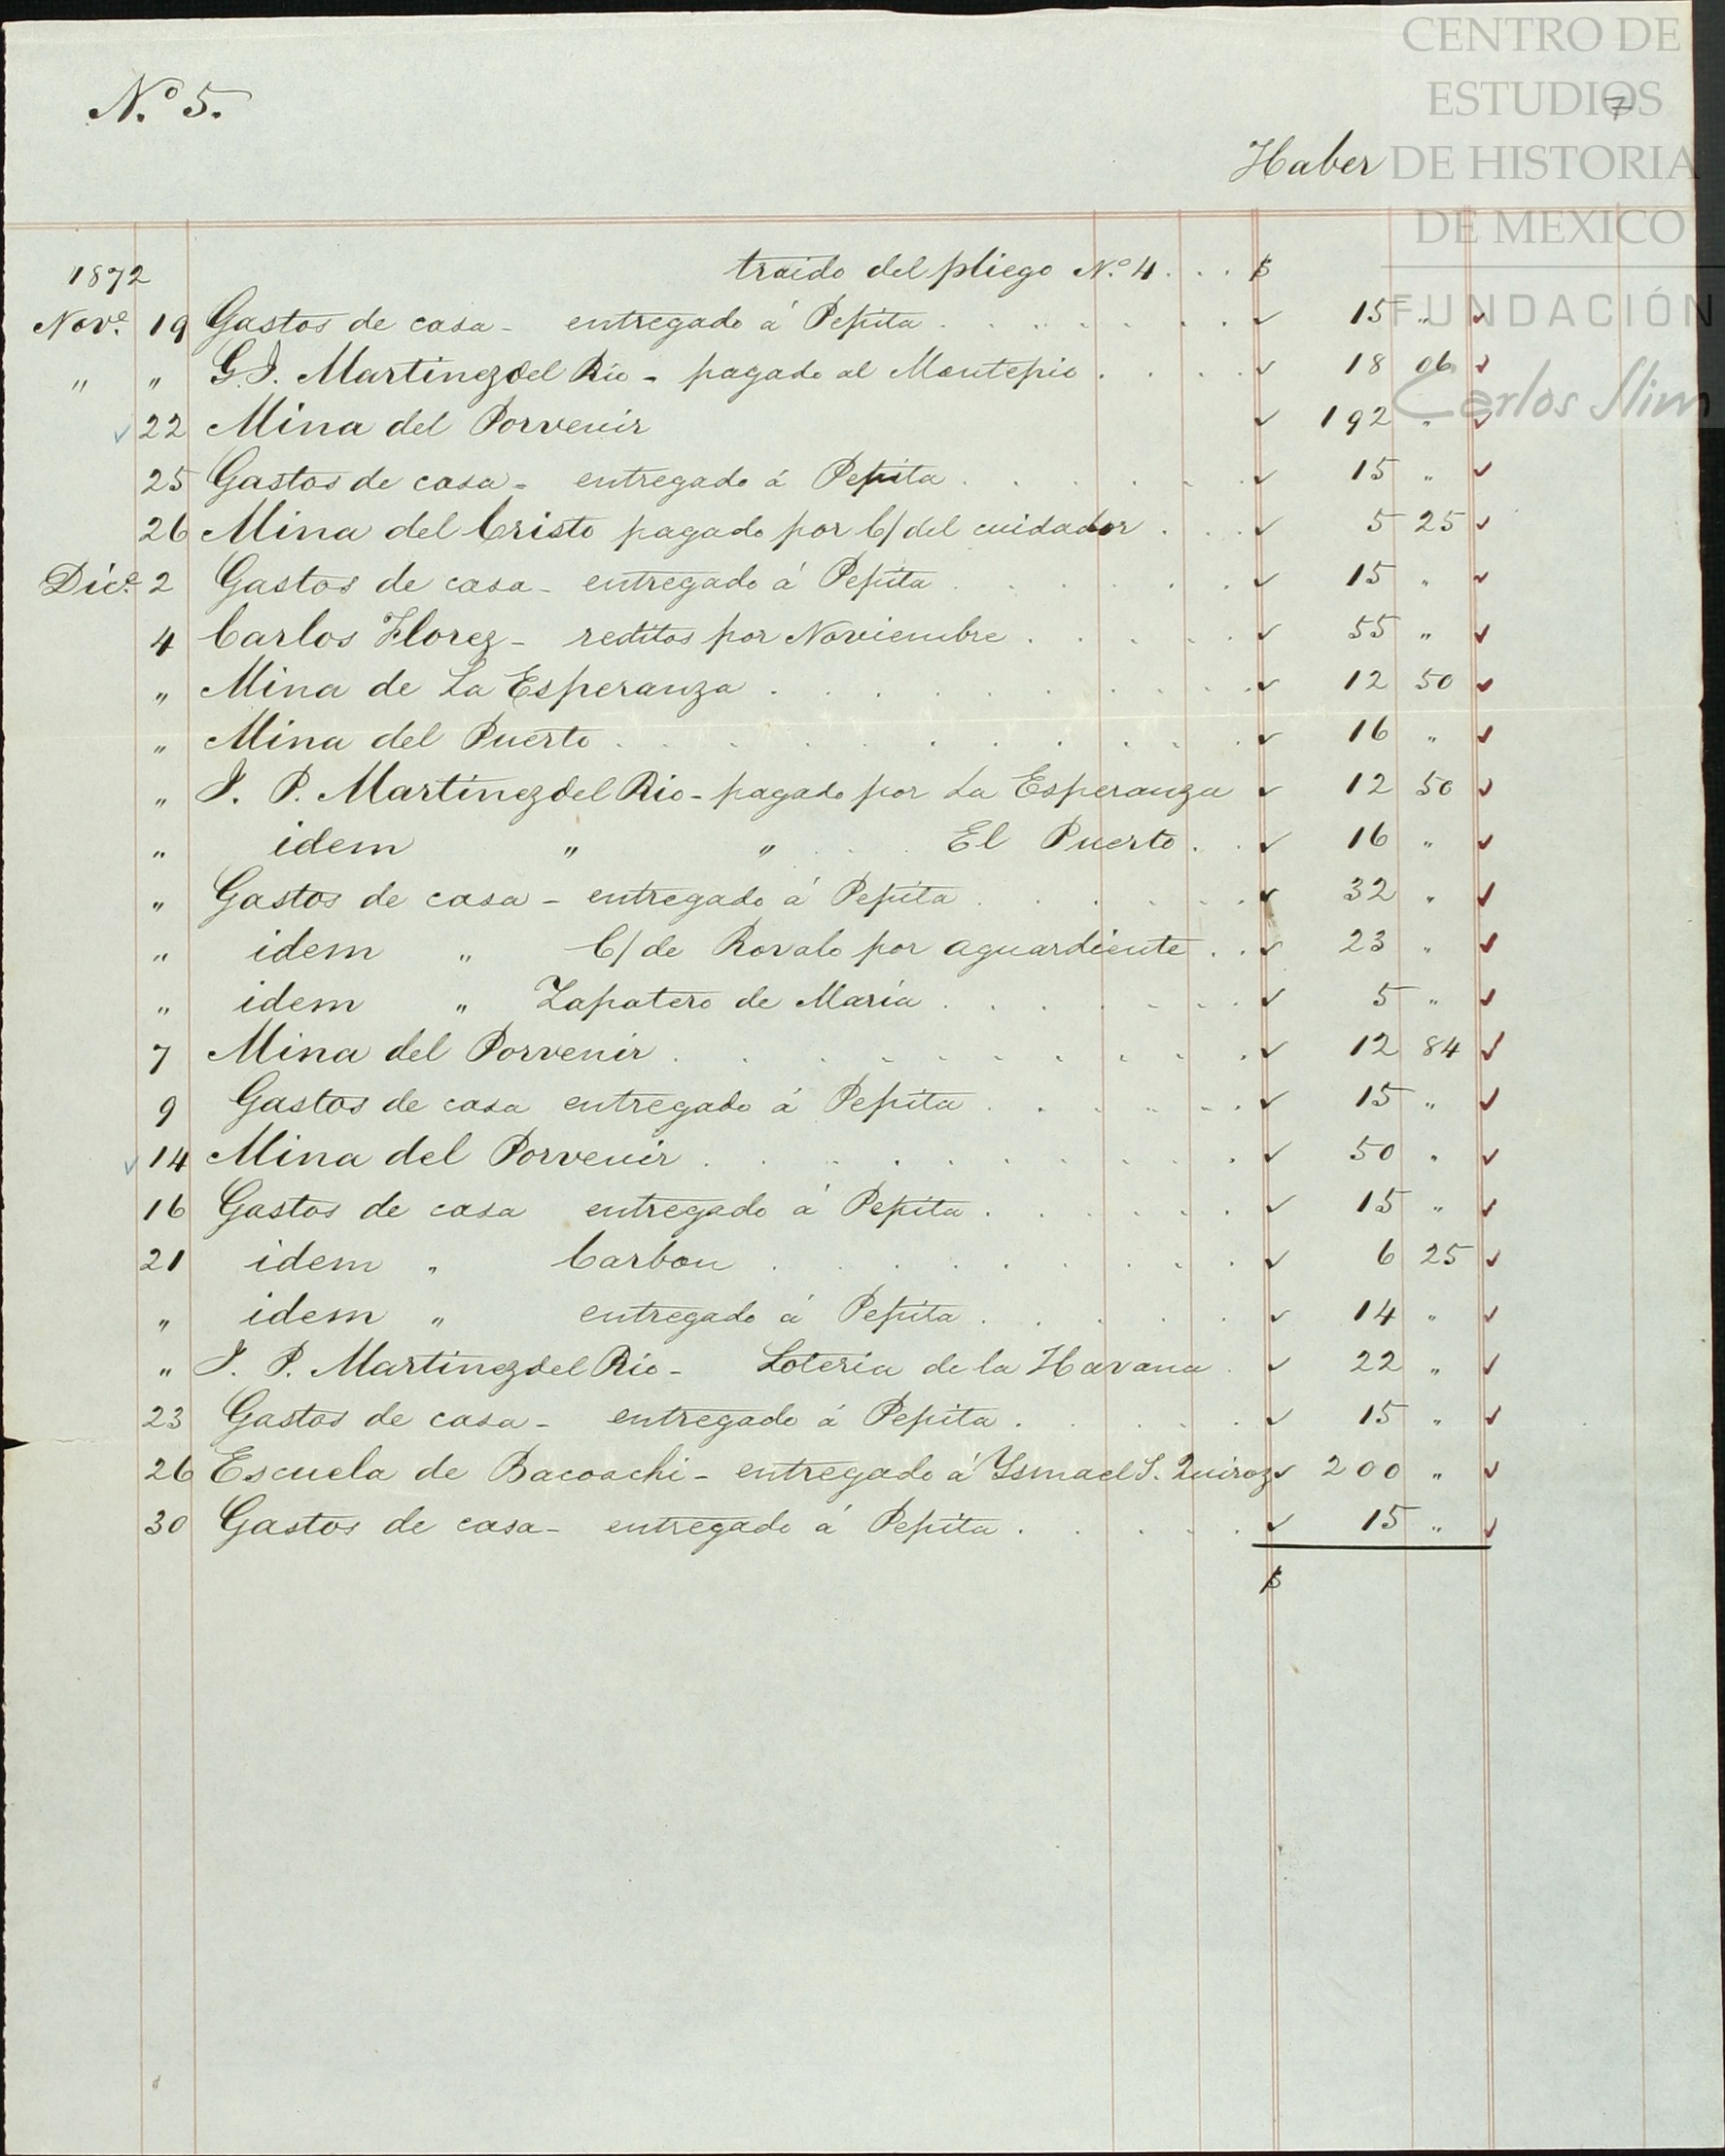 CENTRO DE
ESTUDIOS
DE HISTORIA
DE MEXICO
FUNDACIÓN
Carlos Slim
7
N.o 5.
Haber
1872 traido del pliego N.o 4 . . . $
Nov.e 19 Gastos de casa - entregado á Pepita . . . . . . . ✓ 15 " ✓
" " G. I. Martinez del Rio - pagado al Montepio . . . . ✓ 18 06 ✓
✓ 22 Mina del Porvenir ✓ 192 " ✓
25 Gastos de casa - entregado á Pepita . . . . . . ✓ 15 " ✓
26 Mina del Cristo pagado por C/ del cuidador . . . ✓ 5 25 ✓
Dic.e 2 Gastos de casa - entregado á Pepita . . . . . . ✓ 15 " ✓
4 Carlos Florez - reditos por Noviembre . . . . . ✓ 55 " ✓
" Mina de La Esperanza . . . . . . . . . . ✓ 12 50 ✓
" Mina del Puerto . . . . . . . . . . . . ✓ 16 " ✓
" J. P. Martinez del Rio - pagado por La Esperanza ✓ 12 50 ✓
" idem " " . . . El Puerto . . ✓ 16 " ✓
" Gastos de casa - entregado á Pepita . . . . . . ✓ 32 " ✓
" idem " C/ de Rovalo por aguardiente . . ✓ 23 " ✓
" idem " Zapatero de María . . . . . . . ✓ 5 " ✓
7 Mina del Porvenir . . . . . . . . . . . ✓ 12 84 ✓
9 Gastos de casa entregado á Pepita . . . . . . ✓ 15 " ✓
✓ 14 Mina del Porvenir . . . . . . . . . . ✓ 50 " ✓
16 Gastos de casa entregado á Pepita . . . . . . ✓ 15 " ✓
21 idem " Carbon . . . . . . . . . ✓ 6 25 ✓
" idem " entregado á Pepita . . . . . ✓ 14 " ✓
" J. P. Martinez del Rio - Loteria de la Havana . ✓ 22 " ✓
23 Gastos de casa - entregado á Pepita . . . . . ✓ 15 " ✓
26 Escuela de Bacoachi - entregado á Ysmael S. Quiroz ✓ 200 " ✓
30 Gastos de casa - entregado á Pepita . . . . . ✓ 15 " ✓
$